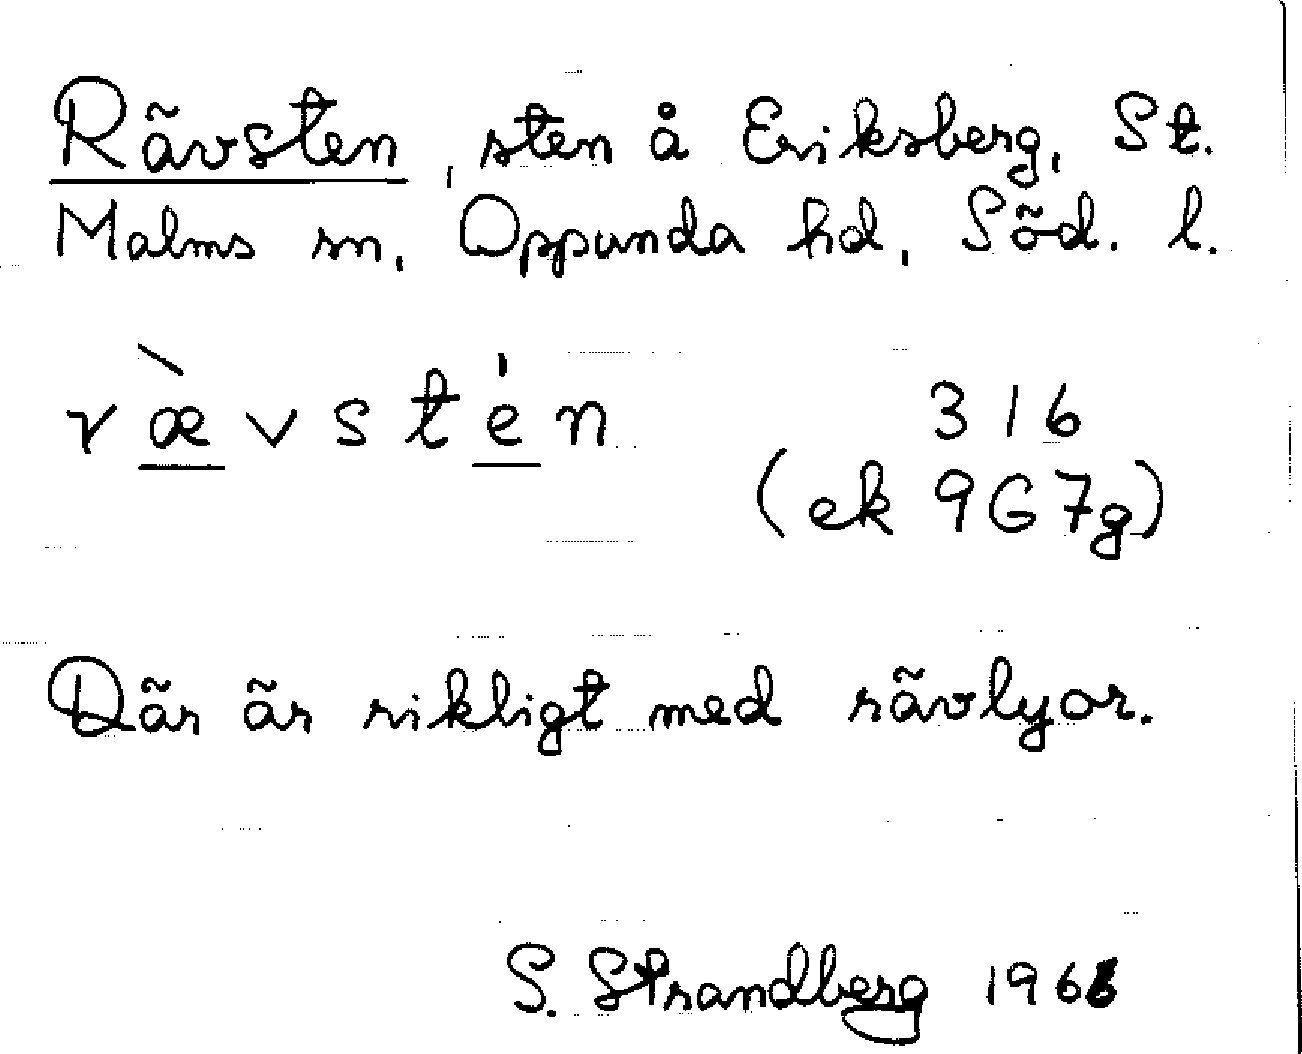 Rävsten, sten å Eriksberg, St.
Malms sn, Oppunda hd, Söd. l.
ræ̀vstén 316
(ek 9G7g)
Där är rikligt med rävlyor.
S. Strandberg 1966